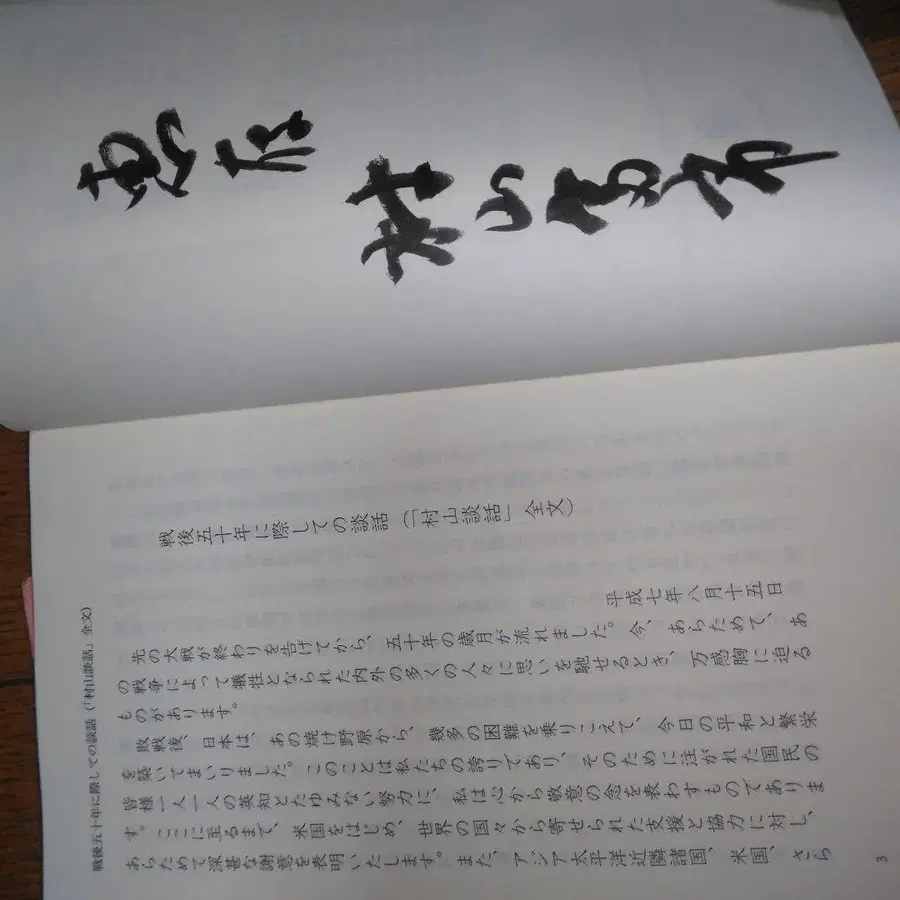 恵存
村山富市
戦後五十年に際しての談話(「村山談話」全文)
平成七年八月十五日
先の大戦が終わりを告げてから、五十年の歳月が流れました。今、あらためて、あ
の戦争によって犠牲となられた内外の多くの人々に思いを馳せるとき、万感胸に迫る
ものがあります。
敗戦後、日本は、あの焼け野原から、幾多の困難を乗りこえて、今日の平和と繁栄
を築いてまいりました。このことは私たちの誇りであり、そのために注がれた国民の
皆様一人一人の英知とたゆみない努力に、私は心から敬意の念を表わすものでありま
す。ここに至るまで、米国をはじめ、世界の国々から寄せられた支援と協力に対し、
あらためて深甚な謝意を表明いたします。また、アジア太平洋近隣諸国、米国、さら
戦後五十年に際しての談話(「村山談話」全文)
3